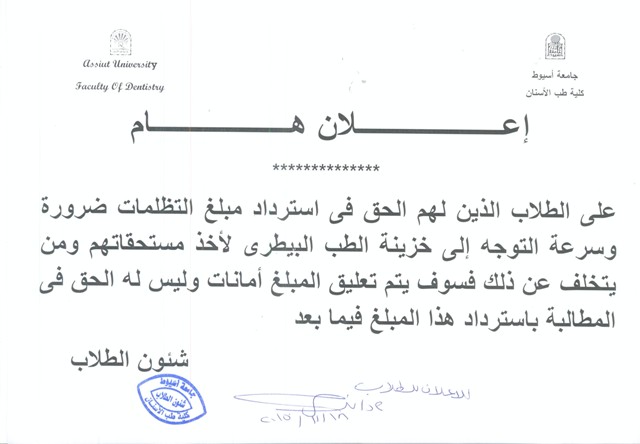 Assiut University
Faculty Of Dentistry
جامعة أسيوط
كلية طب الأسنان
إعـــــــــــلان هـــــــــــام
**************
على الطلاب الذين لهم الحق فى استرداد مبلغ التظلمات ضرورة
وسرعة التوجه إلى خزينة الطب البيطرى لأخذ مستحقاتهم ومن
يتخلف عن ذلك فسوف يتم تعليق المبلغ أمانات وليس له الحق فى
المطالبة باسترداد هذا المبلغ فيما بعد
شئون الطلاب
جامعة أسيوط
شئون الطلاب
كلية طب الأسنان
للإعلان للطلاب